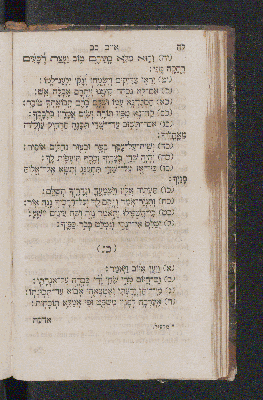 איוב כב
(יח) וְהוּא מִלֵּא בָתֵּיהֶם טוֹב וַעֲצַת רְשָׁעִים
רָחֲקָה מֶנִּי׃
(יט) יִרְאוּ צַדִּיקִים וְיִשְׂמָחוּ וְנָקִי יִלְעַג־לָמוֹ׃
(כ) אִם־לֹא נִכְחַד קִימָנוּ וְיִתְרָם אָכְלָה אֵשׁ׃
(כא) הַסְכֶּן־נָא עִמּוֹ וּשְׁלָם בָּהֶם תְּבוֹאָתְךָ טוֹבָה׃
(כב) קַח־נָא מִפִּיו תּוֹרָה וְשִׂים אֲמָרָיו בִּלְבָבֶךָ׃
(כג) אִם־תָּשׁוּב עַד־שַׁדַּי תִּבָּנֶה תַּרְחִיק עַוְלָה
מֵאָהֳלֶךָ׃
(כד) וְשִׁית־עַל־עָפָר בָּצֶר וּבְצוּר נְחָלִים אוֹפִיר׃
(כה) וְהָיָה שַׁדַּי בְּצָרֶיךָ וְכֶסֶף תּוֹעָפוֹת לָךְ׃
(כו) כִּי־אָז עַל־שַׁדַּי תִּתְעַנָּג וְתִשָּׂא אֶל־אֱלוֹהַּ
פָּנֶיךָ׃
(כז) תַּעְתִּיר אֵלָיו וְיִשְׁמָעֶךָּ וּנְדָרֶיךָ תְשַׁלֵּם׃
(כח) וְתִגְזַר־אֹמֶר וְיָקָם לָךְ וְעַל־דְּרָכֶיךָ נָגַהּ אוֹר׃
(כט) כִּי־הִשְׁפִּילוּ וַתֹּאמֶר גֵּוָה וְשַׁח עֵינַיִם יוֹשִׁעַ׃
(ל) יְמַלֵּט אִי־נָקִי וְנִמְלַט בְּבֹר כַּפֶּיךָ׃
(כג)
(א) וַיַּעַן אִיּוֹב וַיֹּאמַר׃
(ב) גַּם־הַיּוֹם מְרִי שִׂחִי יָדִי כָּבְדָה עַל־אַנְחָתִי׃
(ג) מִי־יִתֵּן יָדַעְתִּי וְאֶמְצָאֵהוּ אָבוֹא עַד־תְּכוּנָתוֹ׃
(ד) אֶעֶרְכָה לְפָנָיו מִשְׁפָּט וּפִי אֲמַלֵּא תוֹכָחוֹת׃
אדעה